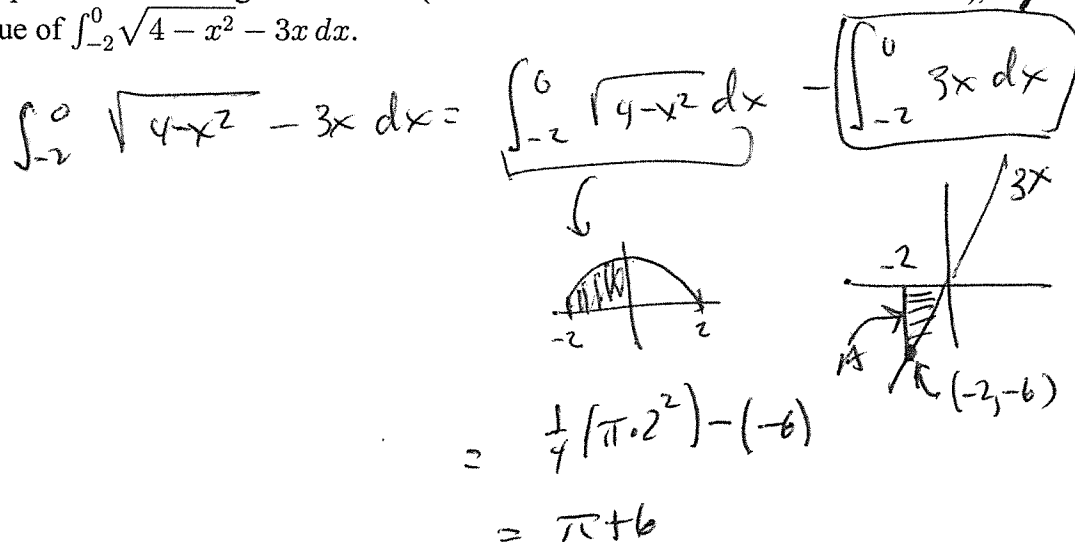 ue of ∫_{-2}^{0} √(4 − x²) − 3x dx.
∫_{-2}^{0} √(4-x²) − 3x dx = ∫_{-2}^{0} √(4-x²) dx − ∫_{-2}^{0} 3x dx
3x
-2
-2 2
A
(-2,-6)
= 1/4 (π·2²) − (−6)
= π+6